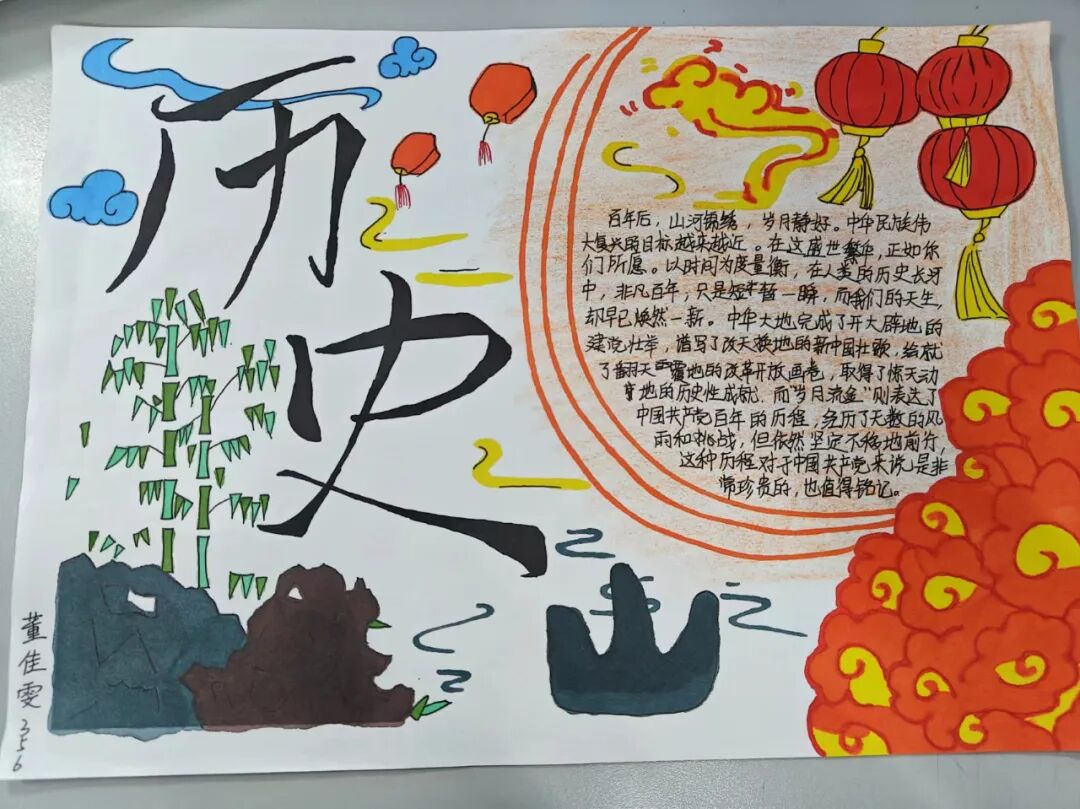 历史
百年后，山河锦绣，岁月静好。中华民族伟
大复兴的目标越来越近。在这盛世繁华，正如你
们所愿。以时间为度量衡，在人类的历史长河
中，非凡百年，只是短暂一瞬，而我们的天生
却早已焕然一新。中华大地完成了开天辟地的
建党壮举，谱写了改天换地的新中国壮歌，绘就
了翻天覆地的改革开放画卷，取得了惊天动
地的历史性成就 而"岁月流金"则表达了
中国共产党百年的历程，经历了无数的风
雨和挑战，但依然坚定不移地前行，
这种历程对于中国共产党来说是非
常珍贵的，也值得铭记。
董佳雯
356